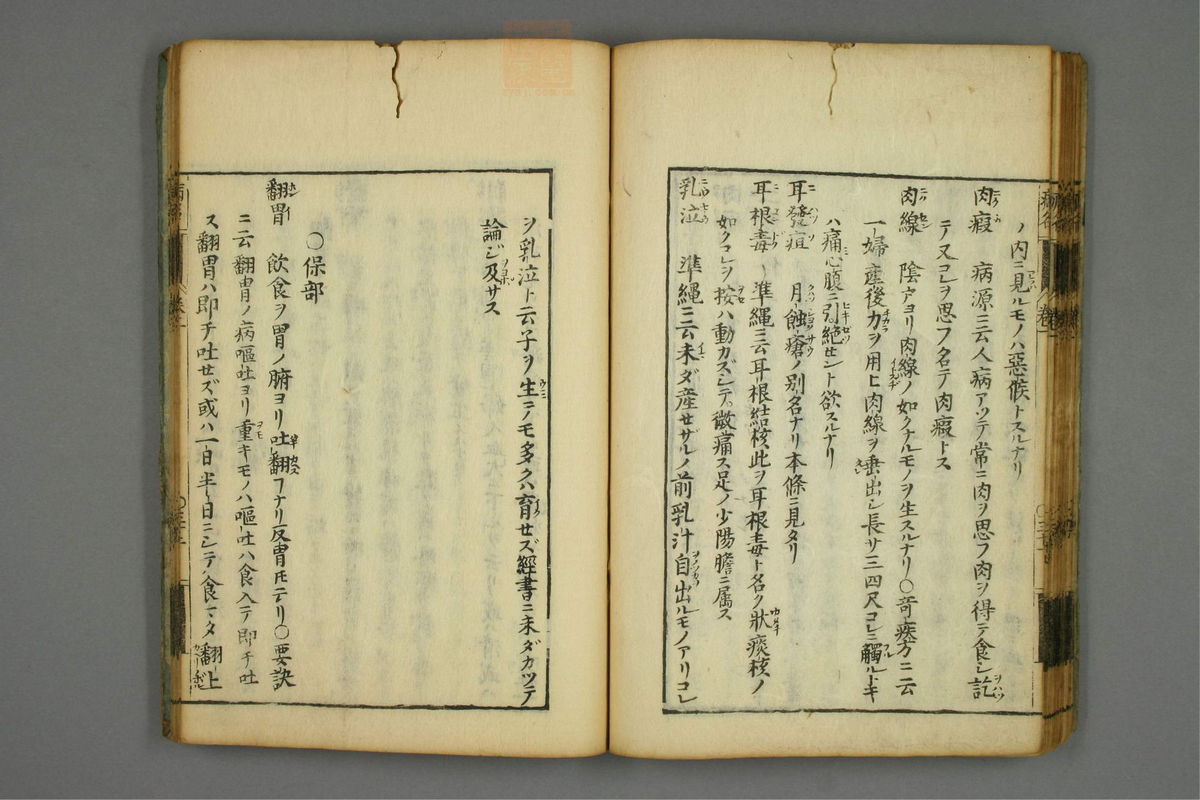 ノ内ニ見ルモノハ惡候トスルナリ
肉瘕 病源ニ云人病アツテ常ニ肉ヲ思フ肉ヲ得テ食シ訖
テ又コレヲ思フ名テ肉瘕トス
肉線 陰戸ヨリ肉線ノ如クナルモノヲ生スルナリ○奇疾方ニ云
一婦産後力ヲ用ヒ肉線ヲ垂出シ長サ三四尺コレニ觸ルトキ
ハ痛心腹ニ引絶セント欲スルナリ
耳發疽 月蝕瘡ノ别名ナリ本條ニ見タリ
耳根毒 準繩ニ云耳根結核此ヲ耳根毒ト名ク狀痰核ノ
如クコレヲ按ハ動カズシテ微痛ス足ノ少陽膽ニ属ス
乳泣 準繩ニ云未ダ産セザルノ前乳汁自出ルモノアリコレ
ヲ乳泣ト云子ヲ生ニノモ多クハ育セズ經書ニ未ダカツテ
論ジ及サス
○保部
翻胃 飲食ヲ胃ノ腑ヨリ吐翻フナリ反胃圧テリ○要訣
ニ云翻胃ノ病嘔吐ヨリ重キモノハ嘔吐ハ食入テ即チ吐
ス翻胃ハ即チ吐セズ或ハ一日半日ニシテ食マタ翻上